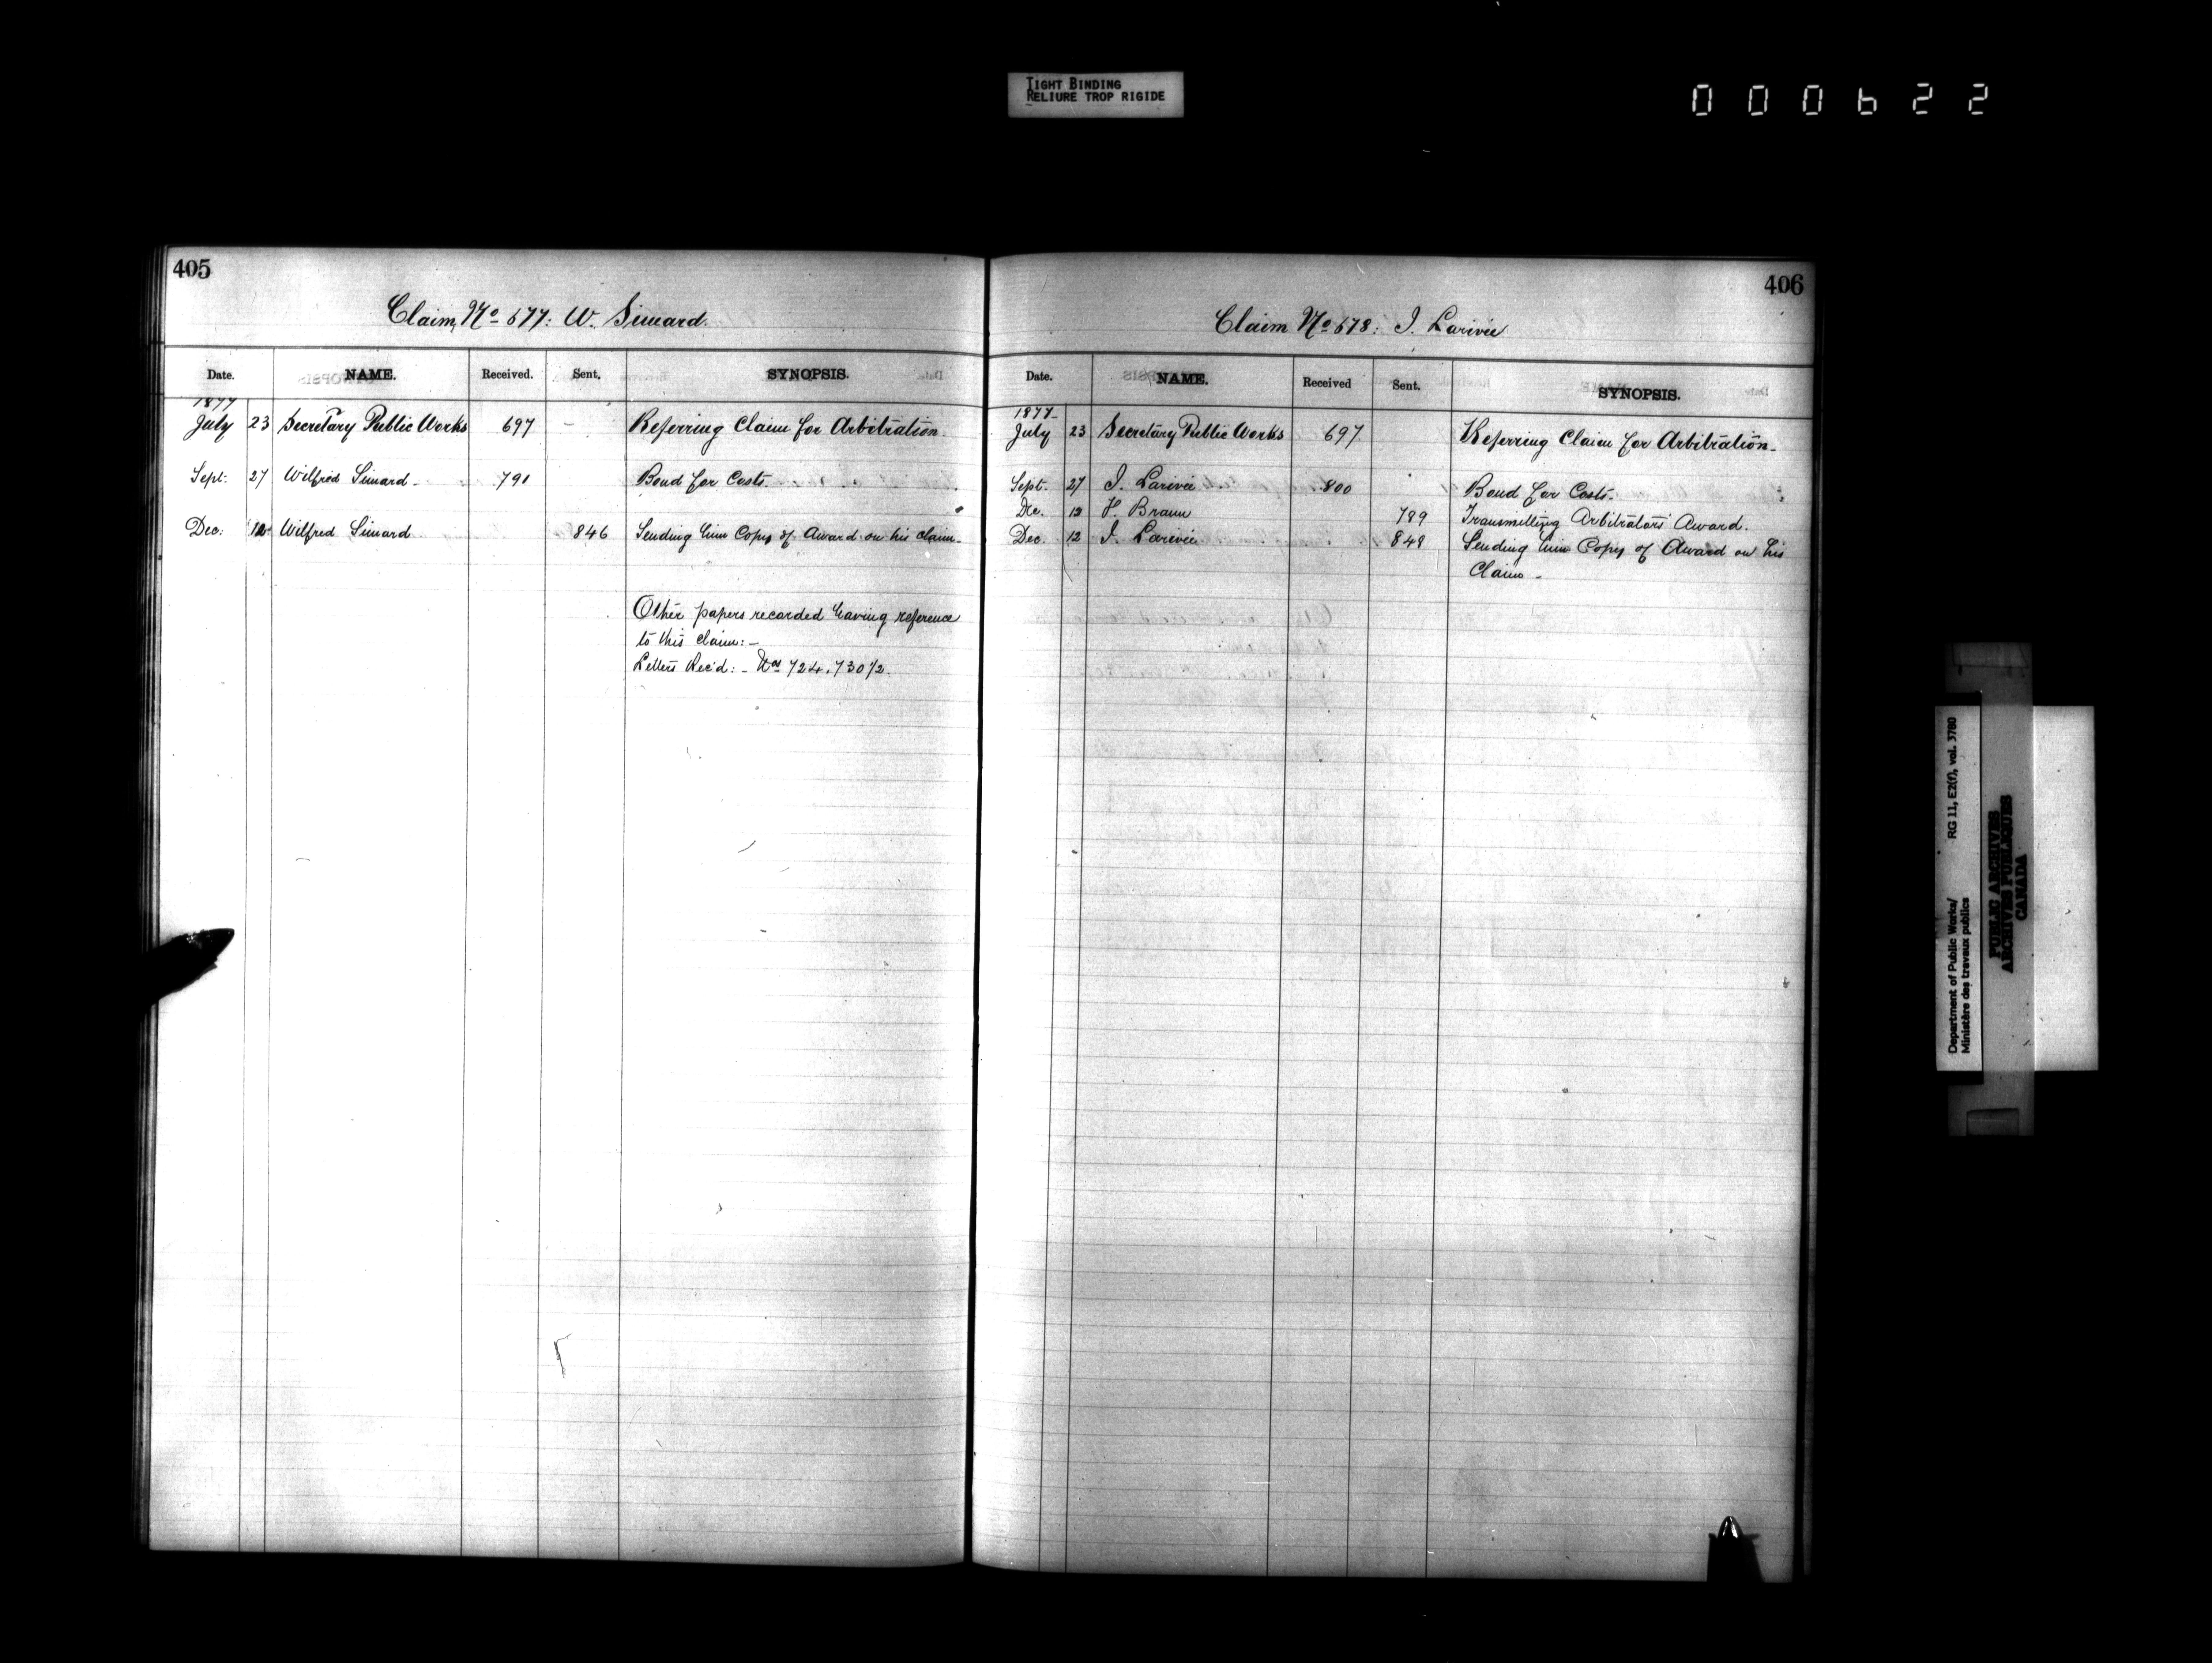 TIGHT BINDING
RELIURE TROP RIGIDE
000622
405
Claim, No 677: W. Simard.
Date. NAME. Received. Sent. SYNOPSIS.
1877
July 23 Secretary Public Works 697 - Referring Claim for Arbitration.
Sept: 27 Wilfred Simard - 791 Bond for Costs.
Dec: 12 Wilfred Simard 846 Sending him Copy of Award on his claim -
Other papers recorded having reference
to this claim: -
Letters Rec'd: - Nos 724, 730 1/2.
406
Claim No 678: I. Larivée
Date. NAME. Received Sent. SYNOPSIS.
1877
July 23 Secretary Public Works 697 Referring Claim for Arbitration -
Sept. 27 I. Larivée 800 Bond for Costs.
Dec. 12 F. Braun 789 Transmitting Arbitrators' Award.
Dec. 12 I. Larivée 849 Sending him Copy of Award on his
Claim -
Department of Public Works/ RG 11, E2(f), vol. 3780
Ministère des travaux publics
PUBLIC ARCHIVES
ARCHIVES PUBLIQUES
CANADA